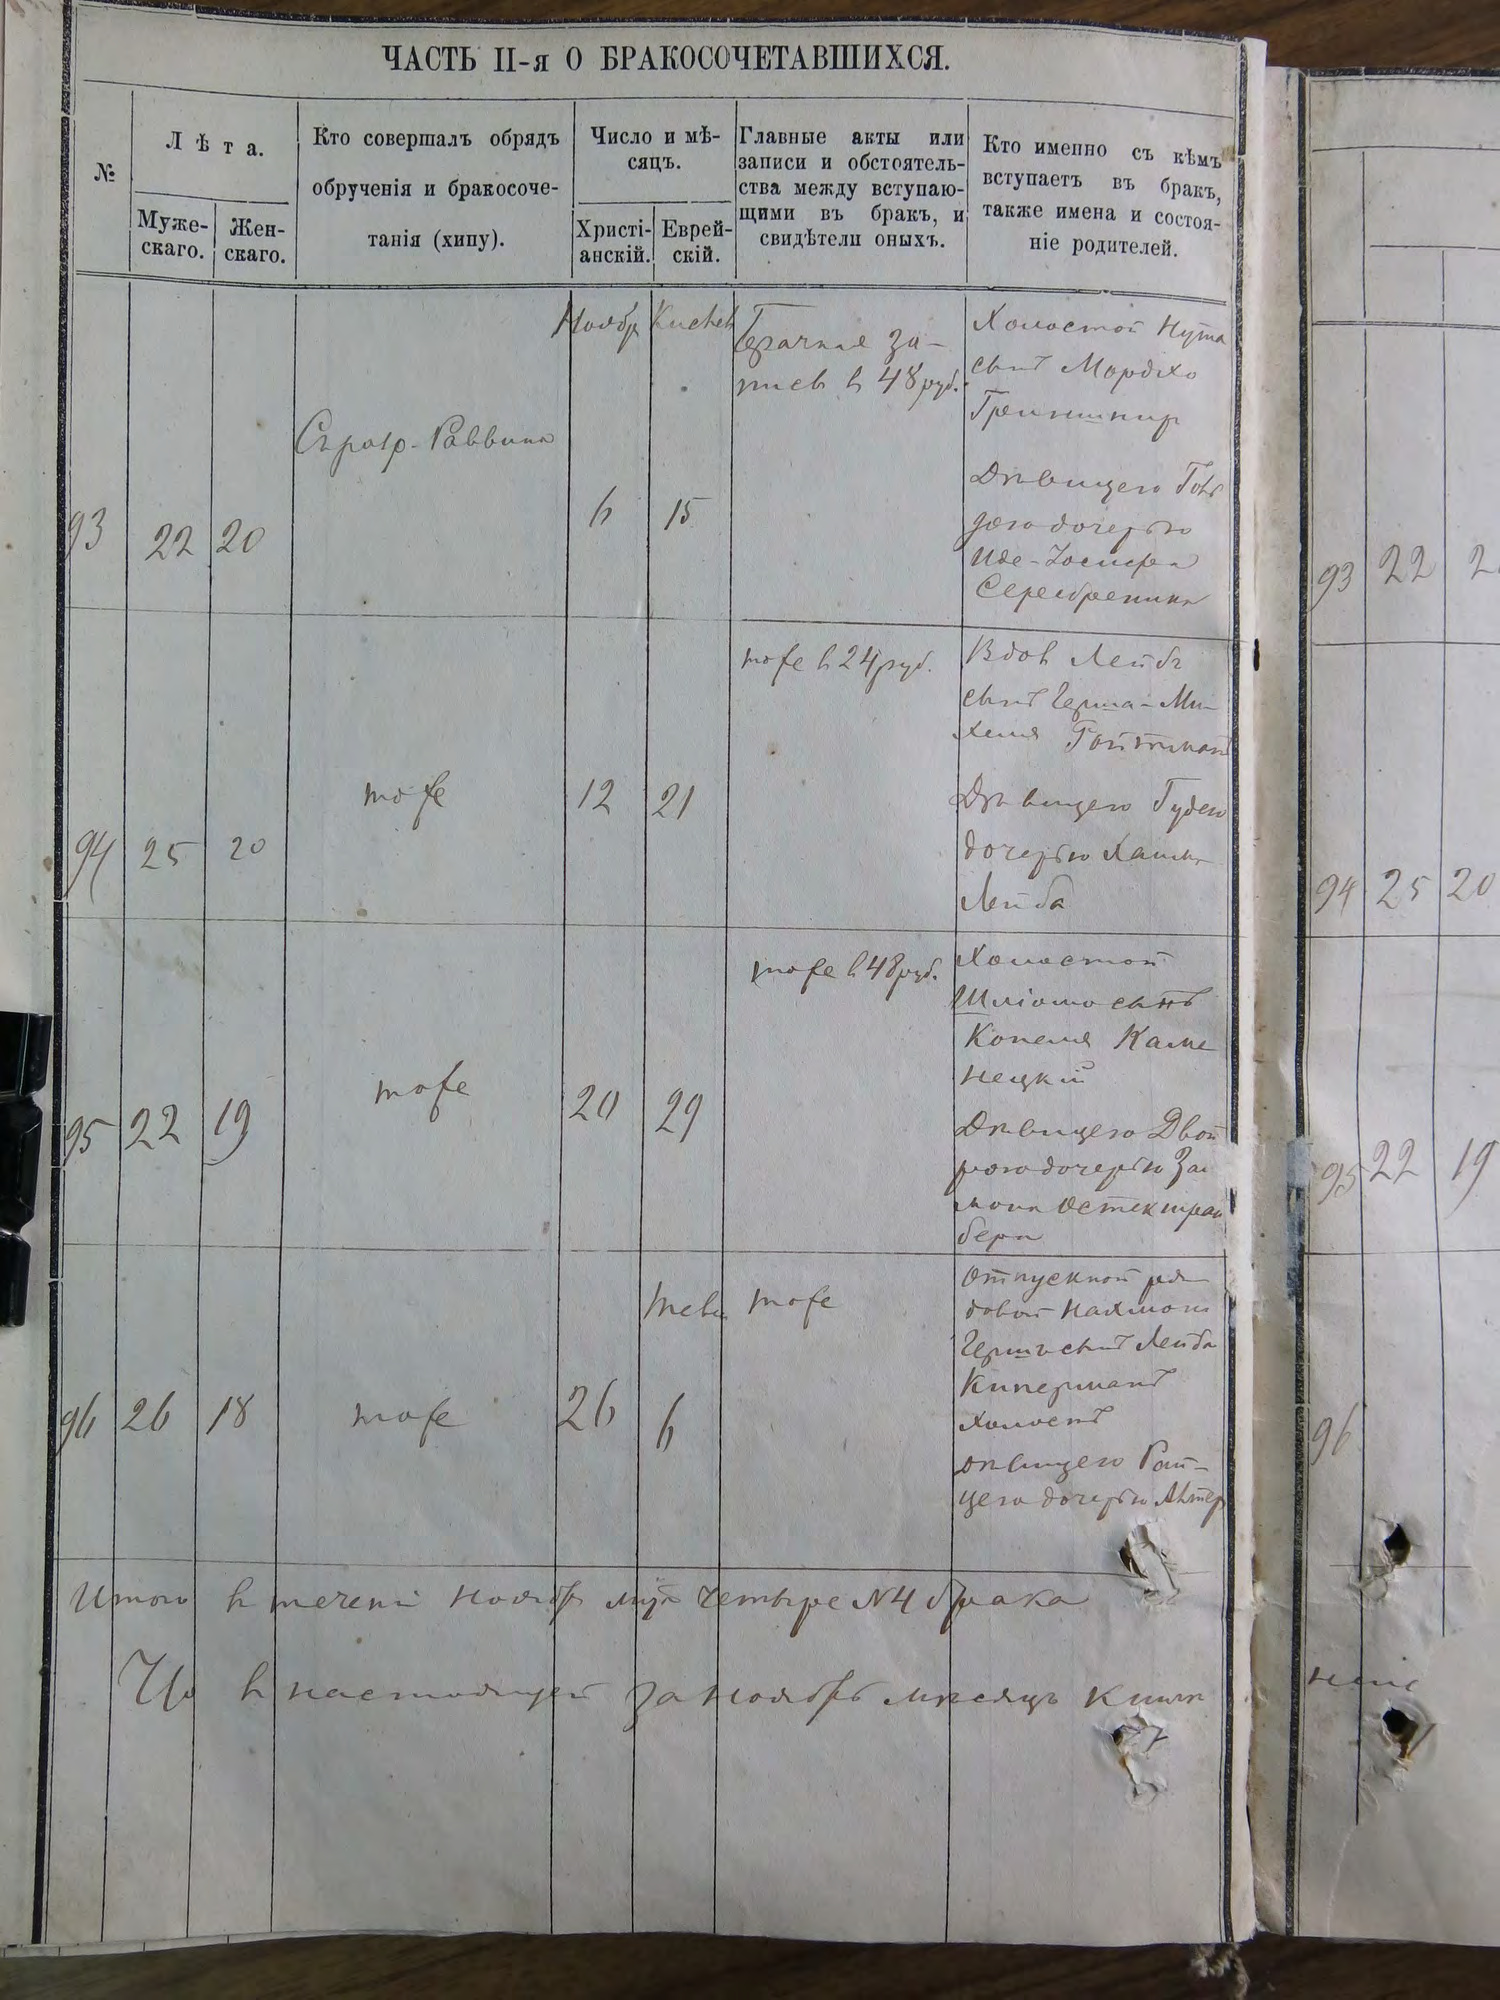 ЧАСТЬ II-я О БРАКОСОЧЕТАВШИХСЯ.
№
Лѣта.
Муже-
скаго.
Жен-
скаго.
Кто совершалъ обрядъ
обрученія и бракосоче-
танія (хипу).
Число и мѣ-
сяцъ.
Христі-
анскій.
Еврей-
скій.
Главные акты или
записи и обстоятель-
ства между вступаю-
щими въ бракъ, и
свидѣтели оныхъ.
Кто именно съ кѣмъ
вступаетъ въ бракъ,
также имена и состоя-
ніе родителей.
93
22
20
Ноябр
6
15
Брачная за-
пись в 48 руб.
Холостой Нута
сынъ Мордхо
Дѣвицею
дочерью
Серебреника
94
25
20
тоже
12
21
тоже в 24 руб.
Вдов Лейбъ
сынъ Герша-Ми-
хеля Гойтманъ
Дѣвицею Гудею
дочерью Хаима
Лейба
95
22
19
тоже
20
29
тоже в 48 руб.
Холостой
Шліома сынъ
Копеля Каме
нецкий
Дѣвицею Двой
рою дочерью Зал
мона
бера
96
26
18
тоже
26
Тевес
6
тоже
Отпускной ря-
довой Нахманъ
Гершъ сынъ Лейба
Киперманъ
холостъ
дѣвицею Рай-
цею дочерью
Итого в течени Ноябрь четыре N 4 брака
Что в настоящей за Ноябрь мѣсяцъ книге
93
22
94
25
20
95
22
19
96